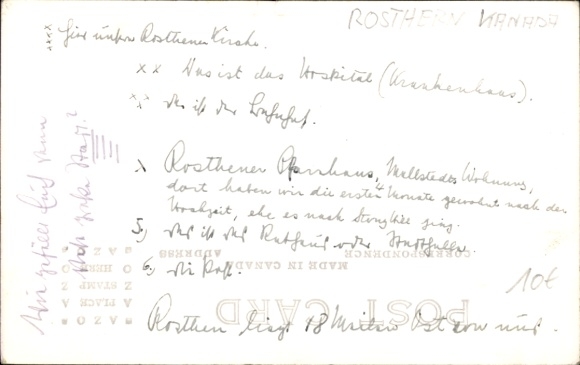 ROSTHERN KANADA
xxxx hier unsere Rosthener Kirche.
xx Das ist das Hospital (Krankenhaus).
xxx das ist der Bahnhof.
x Rosthener Pfarrhaus, Wohnung,
dort haben wir die ersten 4 Monate gewohnt nach der
Hochzeit, ehe es nach ging.
5) das ist das Rathaus oder Stadthalle
6) die Post.
Rosthern liegt 18 Meilen Ost von uns.
10€
Wie gefällt Euch denn
die Stadt?
CORRESPONDENCE
ADDRESS
MADE IN CANADA
POST CARD
AZO
PLACE
STAMP
HERE
AZO